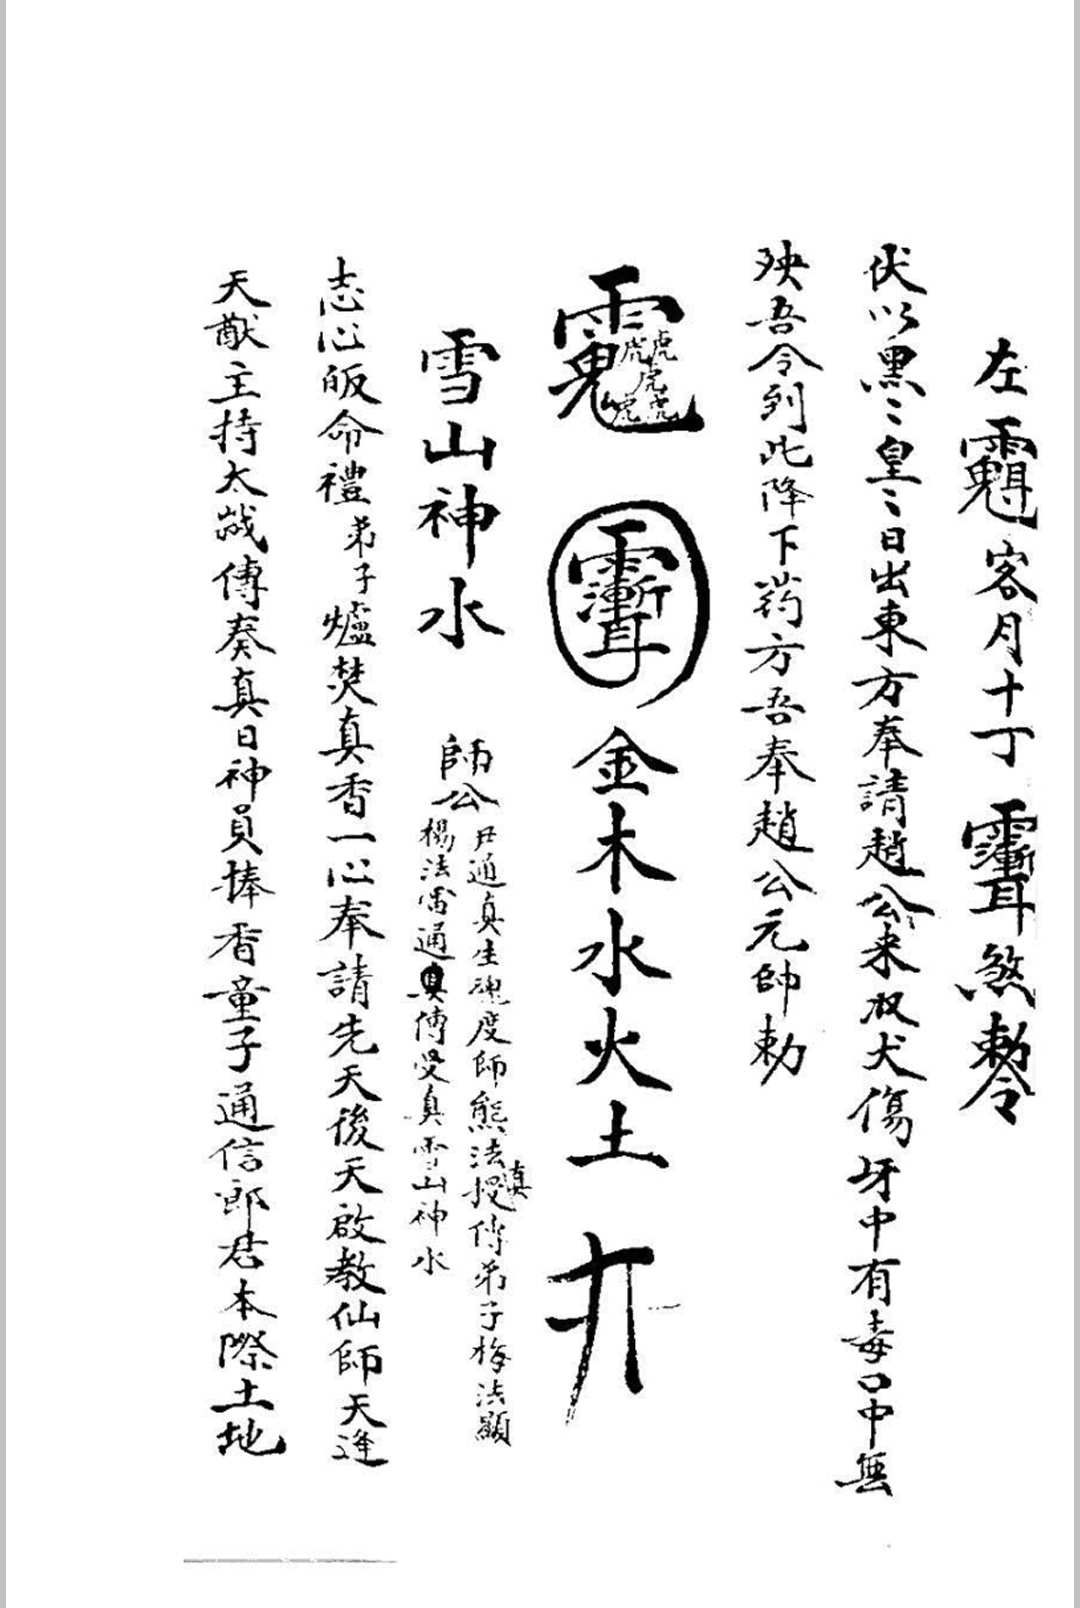 左 客月十丁 煞勅令
伏以黑〻皇〻日出東方奉請趙公来收犬傷牙中有毒口中無
殃吾令列此降下药方吾奉趙公元帥勅
虎虎虎虎虎 金木水火土
雪山神水 師公
尹通真生魂度師熊法真授傳弟子梅法顯
楊法雷通真傅受真雪山神水
志心皈命禮弟子爐焚真香一心奉請先天後天啟教仙師天逢
天猷主持太歲傳奏真日神員捧香童子通信郎君本際土地